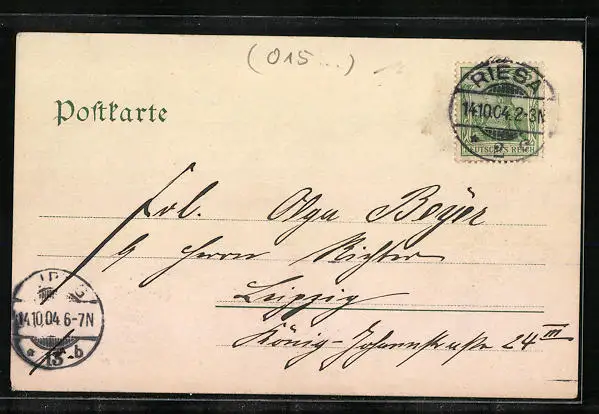 (015...)
Postkarte
RIESA
14.10.04.2-3N
* 2
DEUTSCHES REICH
Frl. Olga Beyer
Herrn Richter
Leipzig
König-Johannstraße 24 III
14.10.04 6-7N
* 13 b